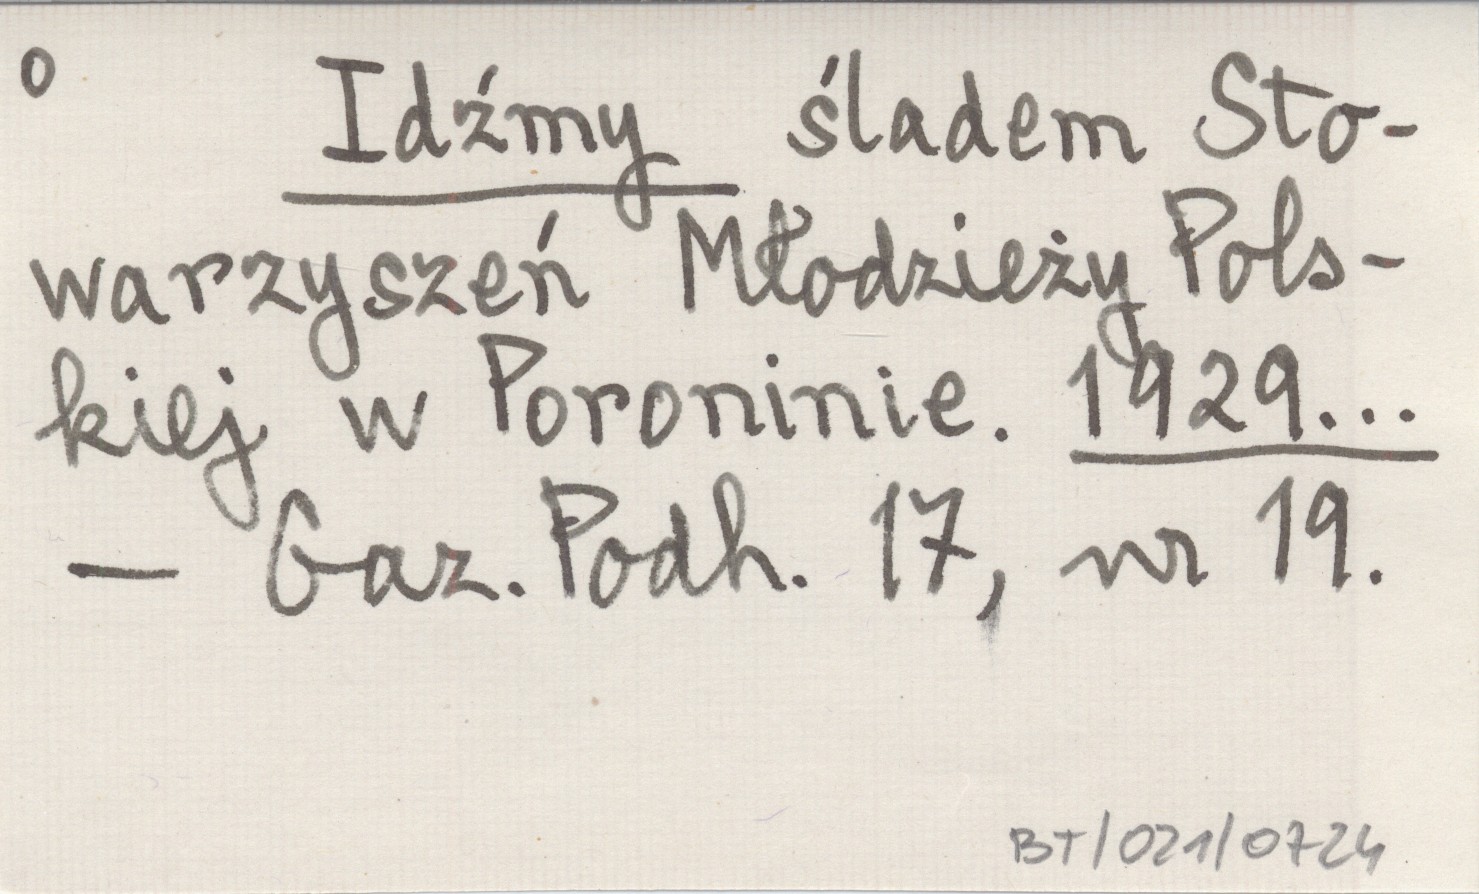 o Idźmy śladem Sto-
warzyszeń Młodzieży Pols-
kiej w Poroninie. 1929...
— Gaz. Podh. 17, nr 19.
BT/021/0724